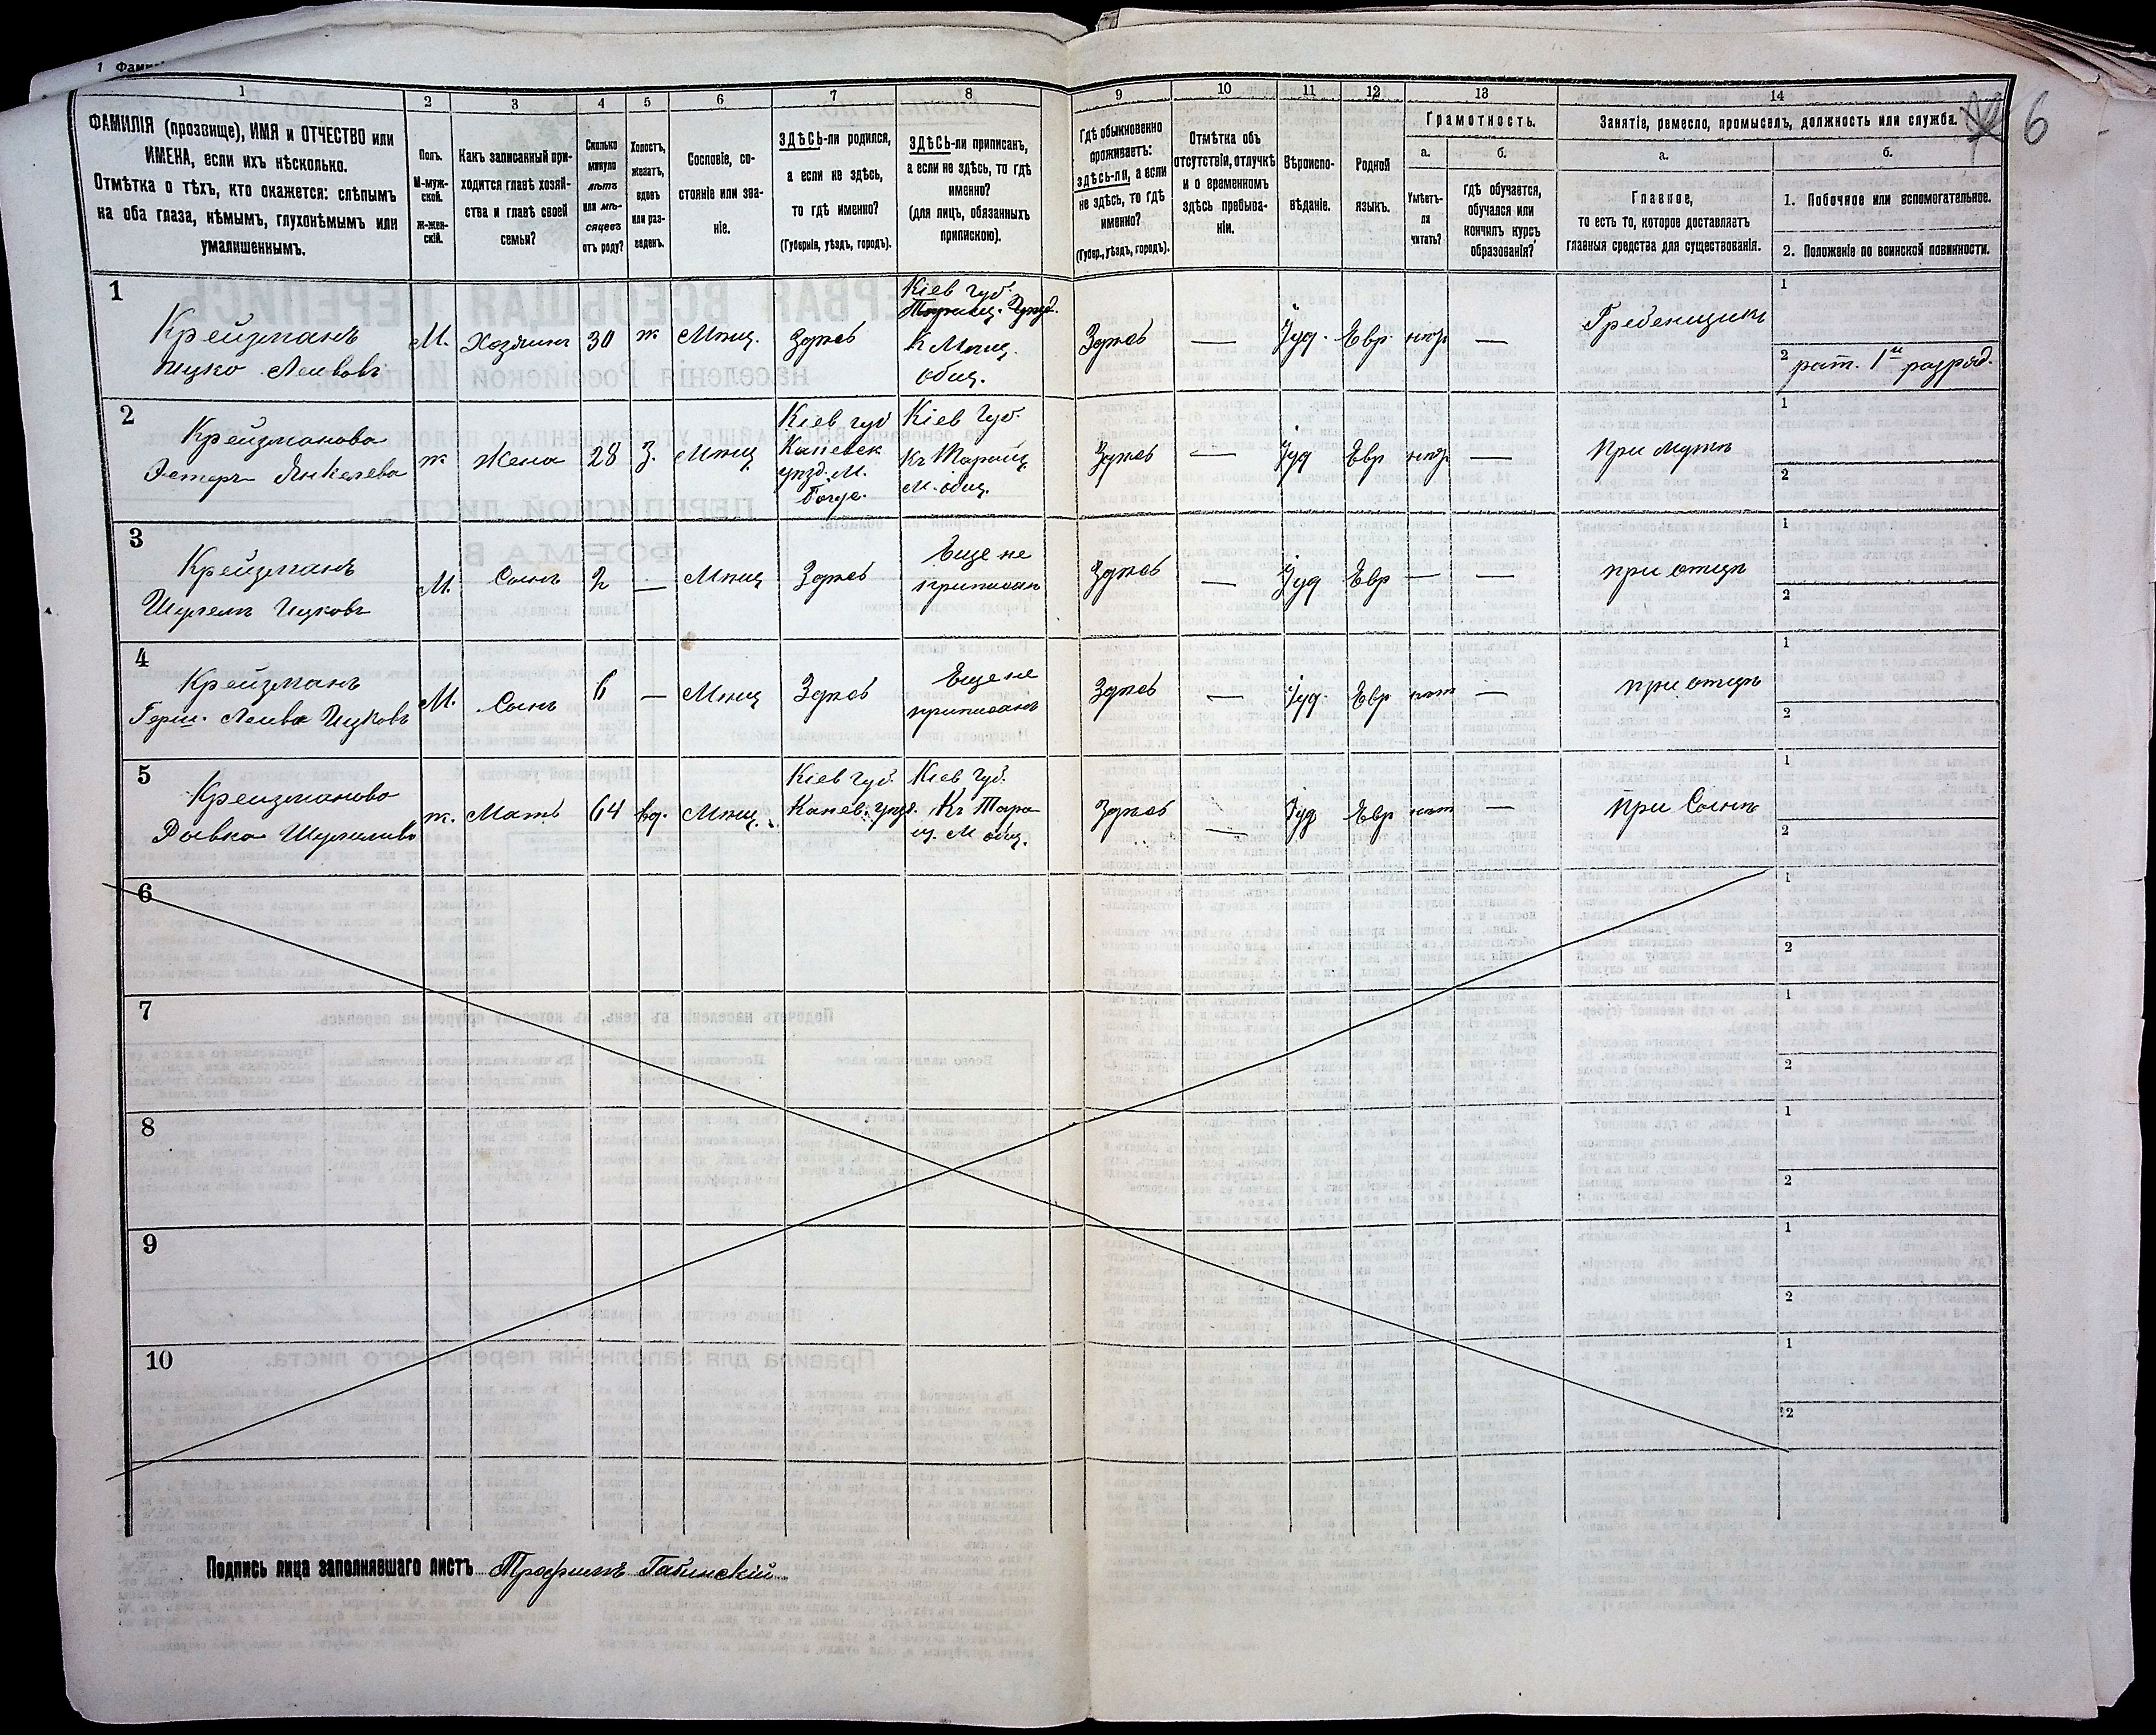 1 Фами
1
2
3
4
5
6
7
8
9
10
11
12
13
14
6
ФАМИЛІЯ (прозвище), ИМЯ и ОТЧЕСТВО или
ИМЕНА, если ихъ нѣсколько.
Отмѣтка о тѣхъ, кто окажется: слѣпымъ
на оба глаза, нѣмымъ, глухонѣмымъ или
умалишеннымъ.
Полъ.
М-муж-
ской.
Ж-жен-
скій.
Какъ записанный при-
ходится главѣ хозяй-
ства и главѣ своей
семьи?
Сколько
минуло
лѣтъ
или мѣ-
сяцевъ
отъ роду?
Холостъ,
женатъ,
вдовъ
или раз-
веденъ.
Сословіе, со-
стояніе или зва-
ніе.
ЗДѢСЬ-ли родился,
а если не здѣсь,
то гдѣ именно?
(Губернія, уѣздъ, городъ).
ЗДѢСЬ-ли приписанъ,
а если не здѣсь, то гдѣ
именно?
(для лицъ, обязанныхъ
припискою).
Гдѣ обыкновенно
проживаетъ:
здѣсь-ли, а если
не здѣсь, то гдѣ
именно?
(Губер., уѣздъ, городъ).
Отмѣтка объ
отсутствіи, отлучкѣ
и о временномъ
здѣсь пребыва-
ніи.
Вѣроиспо-
вѣданіе.
Родной
языкъ.
Грамотность.
а.
Умѣетъ-
ли
читать?
б.
Гдѣ обучается,
обучался или
кончилъ курсъ
образованія?
Занятіе, ремесло, промыселъ, должность или служба.
а.
Главное,
то есть то, которое доставляетъ
главныя средства для существованія.
б.
1. Побочное или вспомогательное.
2. Положеніе по воинской повинности.
1
Крейзманъ
Ицко Лейбовъ
М.
Хозяинъ
30
ж
Мѣщ.
Здѣсь
Кіев губ.
Таращ. уѣзд.
к Мѣщ.
общ.
Здѣсь
—
Іуд.
Евр.
—
Гребенщикъ
1
2 рат. 1й разряд.
2
Крейзманова
Эстеръ Янкелева
ж
Жена
28
З.
Мѣщ
Кіев губ
Каневск
уѣзд. М.
Кіев губ.
Къ Таращ.
м. общ.
Здѣсь
—
Іуд
Евр
—
При мужѣ
1
2
3
Крейзманъ
Шулемъ Ицковъ
М.
Сынъ
2
—
Мѣщ
Здѣсь
Еще не
приписан
Здѣсь
—
Іуд
Евр
—
—
при отцѣ
1
2
4
Крейзманъ
Герш. Лейба Ицковъ
М.
Сынъ
6
—
Мѣщ
Здѣсь
Еще не
приписанъ
Здѣсь
—
Іуд.
Евр
нѣт
—
при отцѣ
1
2
5
Крейзманова
Ривка
ж.
Мать
64
вд.
Мѣщ.
Кіев губ.
Канев. уѣзд.
Кіев губ.
Къ Тара-
щ. М общ.
Здѣсь
—
Іуд
Евр
нѣт
—
при Сынѣ
1
2
6
1
2
7
1
2
8
1
2
9
1
2
10
1
2
Подпись лица заполнявшаго листъ Трофимъ